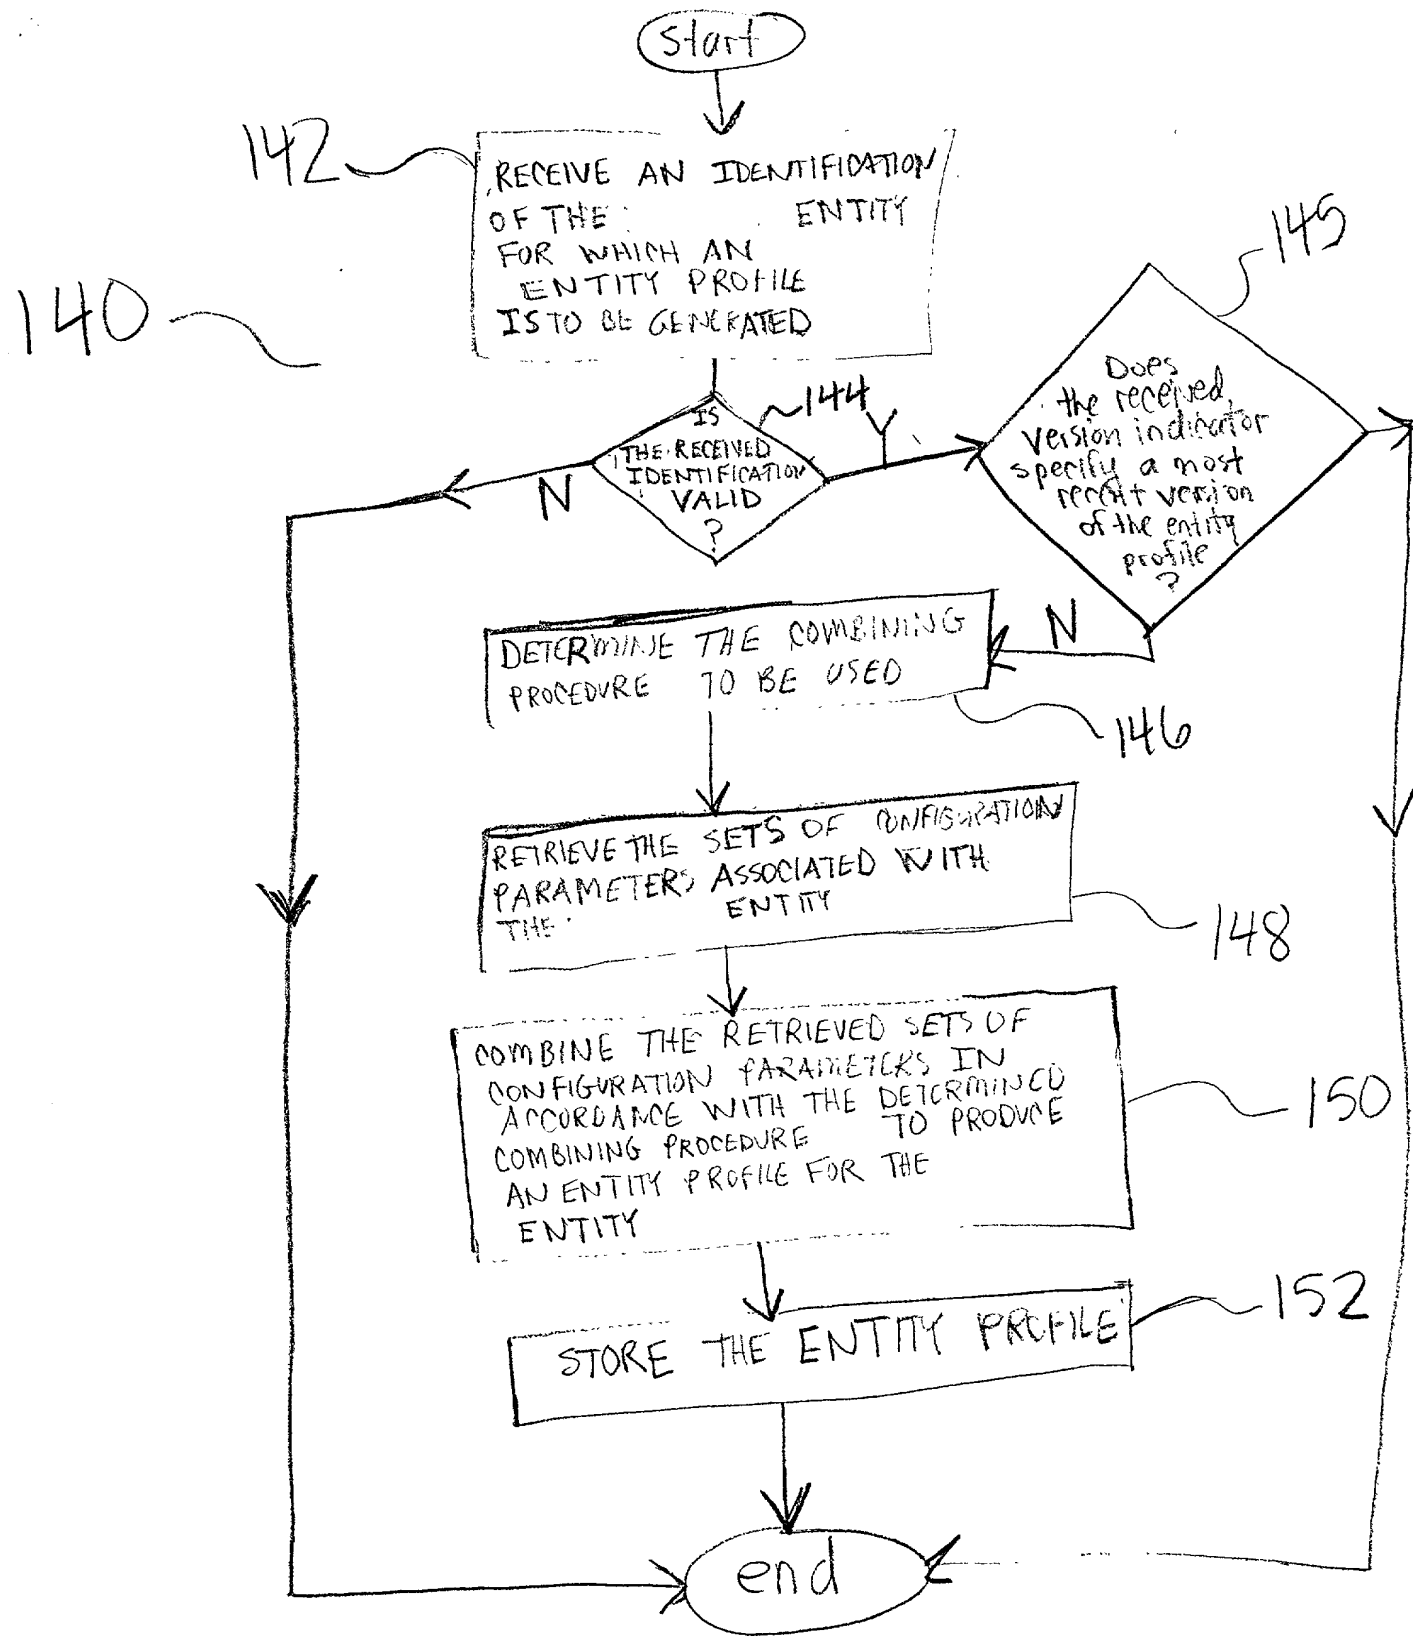 Start
142
RECEIVE AN IDENTIFICATION
OF THE ENTITY
FOR WHICH AN
ENTITY PROFILE
IS TO BE GENERATED
140
144
IS
THE RECEIVED
IDENTIFICATION
VALID
?
N
Y
145
Does
the received
version indicator
specify a most
recent version
of the entity
profile
?
N
DETERMINE THE COMBINING
PROCEDURE TO BE USED
146
RETRIEVE THE SETS OF CONFIGURATION
PARAMETERS ASSOCIATED WITH
THE ENTITY
148
COMBINE THE RETRIEVED SETS OF
CONFIGURATION PARAMETERS IN
ACCORDANCE WITH THE DETERMINED
COMBINING PROCEDURE TO PRODUCE
AN ENTITY PROFILE FOR THE
ENTITY
150
STORE THE ENTITY PROFILE
152
end